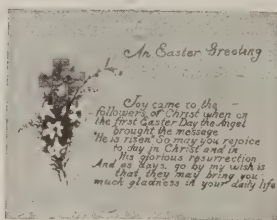 An Easter Greeting
Joy came to the
followers of Christ when on
the first Easter Day the Angel
brought the message
"He is risen" So may you rejoice
to day in Christ and in
His glorious resurrection
And as days go by my wish is
that they may bring you
much gladness in your daily life